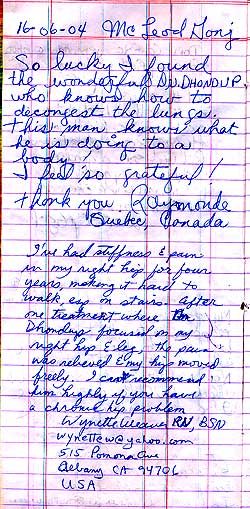 16-06-04 Mc Leod Gonj
So lucky I found
the wonderful Dr. DHONDUP
who knows how to
decongest the lungs.
This man knows what
he is doing to a
body!
I feel so grateful!
thank you Raymonde
Quebec, Canada
I've had stiffness & pain
in my right hip for four
years, making it hard to
walk esp on stairs. After
one treatment where
Dhondup focused on my
right hip & leg the pain
was relieved & my hip moved
freely. I can recommend
him highly if you have
a chronic hip problem
Wynette Weaver RN, BSN
wynettew@yahoo.com
515 Pomona Ave
Albany CA 94706
USA